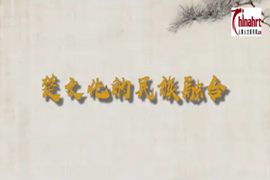 Chinahrt
楚文化的民族融合